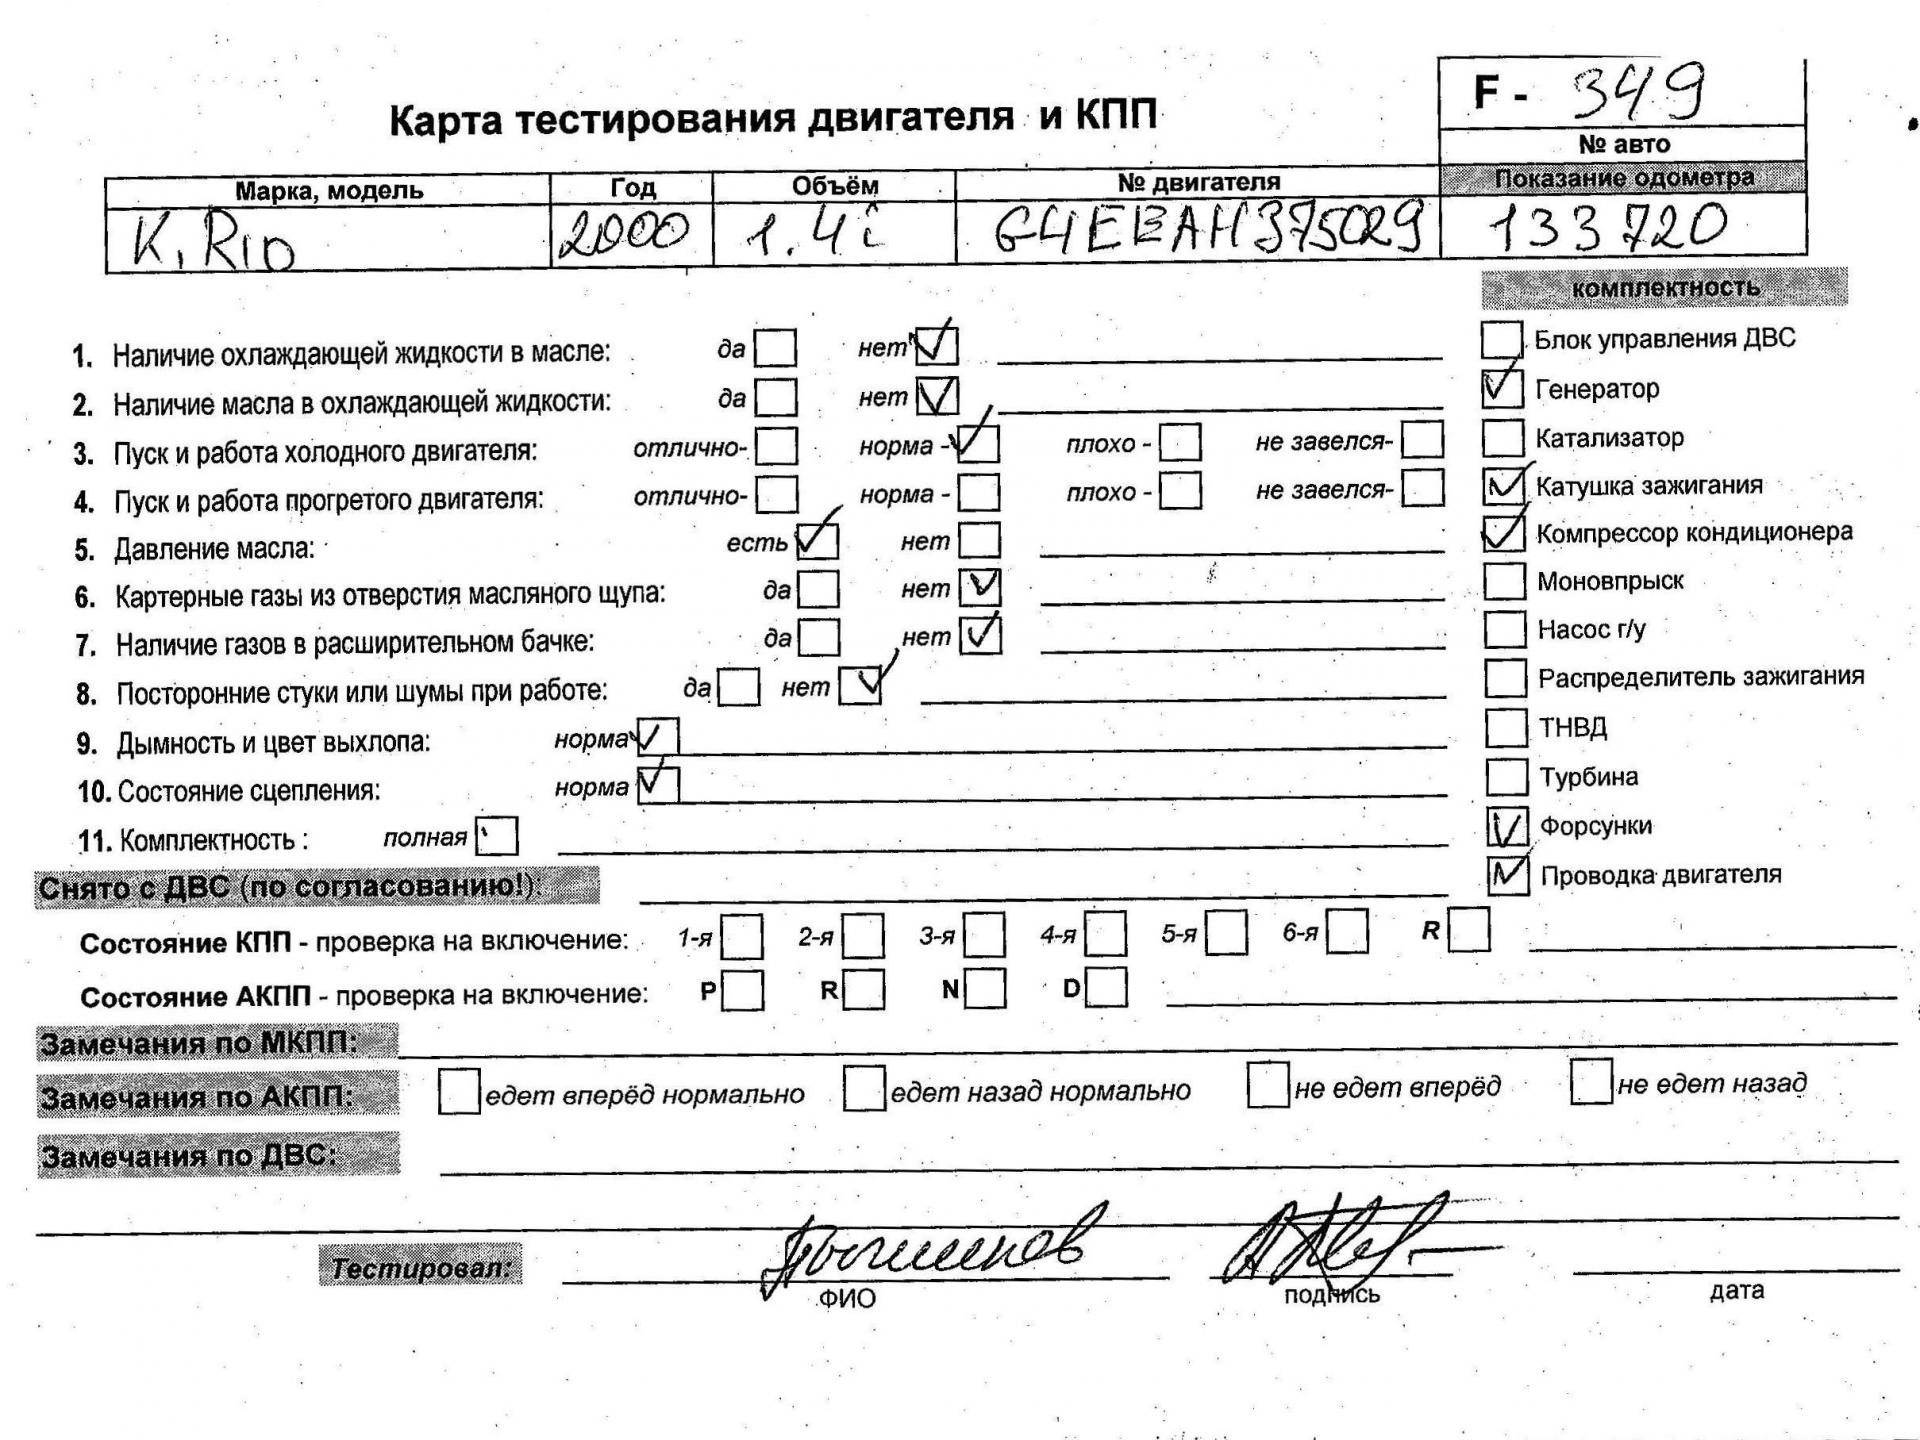 F - 349
Карта тестирования двигателя и КПП
№ авто
Марка, модель Год Объём № двигателя Показание одометра
K. Rio 2000 1.4i G4EEAH375029 133720
комплектность
1. Наличие охлаждающей жидкости в масле: да нет
Блок управления ДВС
2. Наличие масла в охлаждающей жидкости: да нет
Генератор
3. Пуск и работа холодного двигателя: отлично- норма - плохо - не завелся-
Катализатор
4. Пуск и работа прогретого двигателя: отлично- норма - плохо - не завелся-
Катушка зажигания
5. Давление масла: есть нет
Компрессор кондиционера
6. Картерные газы из отверстия масляного щупа: да нет
Моновпрыск
7. Наличие газов в расширительном бачке: да нет
Насос г/у
8. Посторонние стуки или шумы при работе: да нет
Распределитель зажигания
9. Дымность и цвет выхлопа: норма
ТНВД
10. Состояние сцепления: норма
Турбина
11. Комплектность : полная
Форсунки
Снято с ДВС (по согласованию!):
Проводка двигателя
Состояние КПП - проверка на включение: 1-я 2-я 3-я 4-я 5-я 6-я R
Состояние АКПП - проверка на включение: P R N D
Замечания по МКПП:
Замечания по АКПП: едет вперёд нормально едет назад нормально не едет вперёд не едет назад
Замечания по ДВС:
Тестировал:
ФИО подпись дата